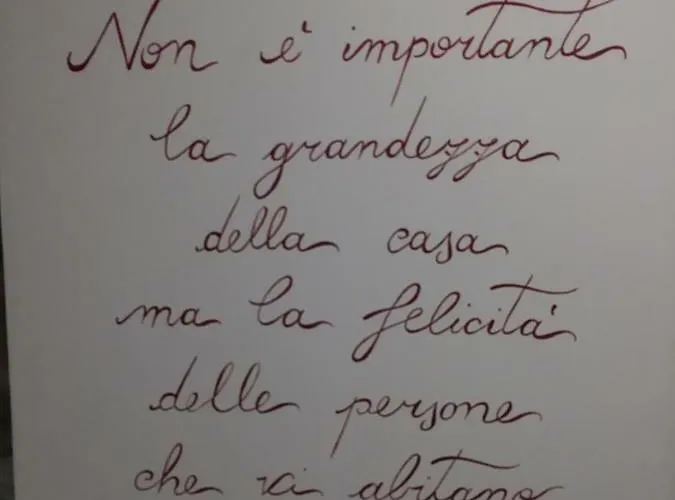 Non è importante
la grandezza
della casa
ma la felicità
delle persone
che vi abitano